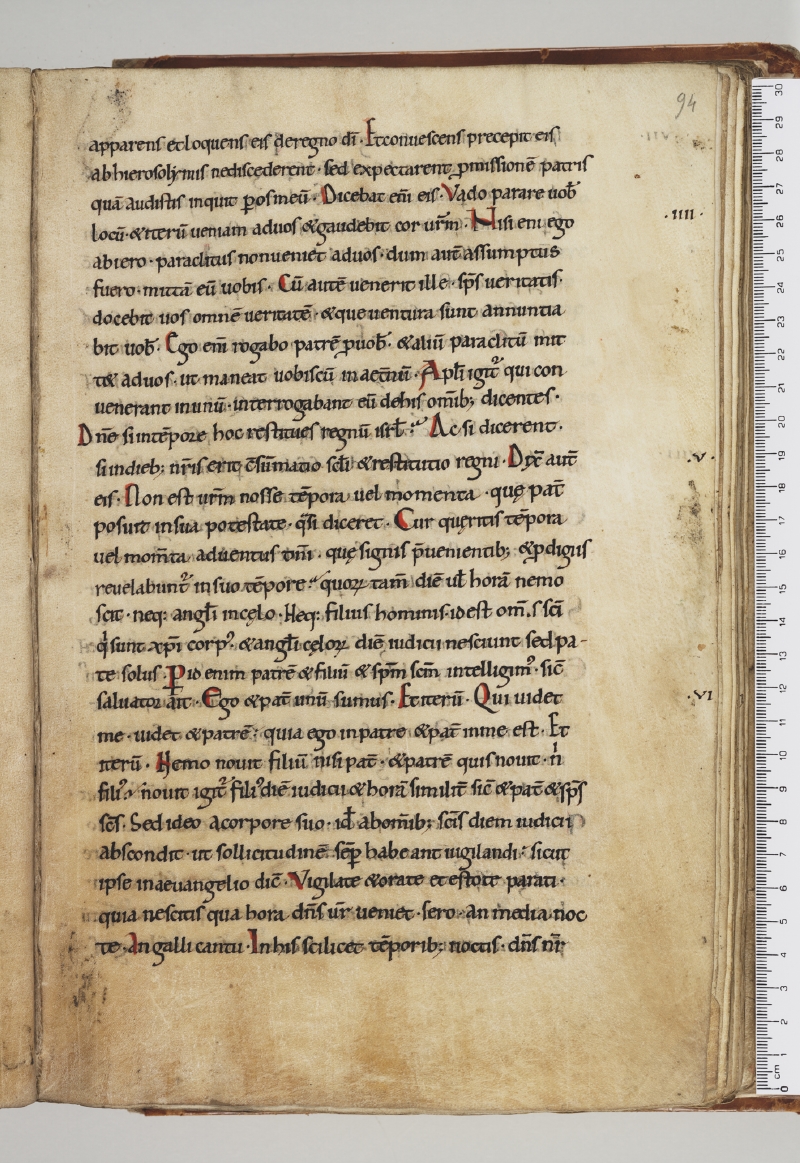 94
apparens et loquens eis de regno dī · Et conuescens precepit eis
ab hierosolymis ne discederent · sed expectarent ꝓmissionē patris
quā audistis inquit ꝑ os meū · Dicebat em̄ eis · Vado parare uob̄
locū · & iterū ueniam ad uos & gaudebit cor ur̄m · Nisi eni ego
· IIII ·
abiero · paraclitus non ueniet ad uos · dum aut̄ assumptus
fuero · mittā eū uobis · Cū autē uenerit ille · sp̄s ueritatis ·
docebit uos omnē ueritatē · & que uentura sunt annuntia
bit uob̄ · Ego em̄ rogabo patrē ꝓ uob̄ · & aliū paraclitū mit
t& ad uos · ut maneat uobiscū in aet̄nū · Apl̄i igit᷑ qui con
uenerant in unū · interrogabant eū de his om̄ib; dicentes ·
Dn̄e si in tēpore hoc restitues regnū isrl̄ · Ac si dicerent ·
si in dieb; nr̄is erit c̄sūmatio sc̄li & restitutio regni · Dix̄ aut̄
· V ·
eis · Non est ur̄m nosse tēpora uel momenta · quę pat̄
posuit in sua potestate · q̄si diceret · Cur quęritis tēpora
uel mom̄ta aduentus dn̄i · quę signis p̄uenientib; & ꝓdigiis
reuelabunt᷑ in suo tēpore · quoꝝ tam̄ diē ul̄ horā nemo
scit · neq; angl̄i in cęlo · Neq; filius hominis · id est om̄s sc̄i
q̇ sunt xp̄i corp᷒ · & angl̄i cęloꝝ diē iudicii nesciunt sed pa-
te solus · Pid enim patrē & filiū & sp̄m sc̄m intelligim᷒ · sic̄
saluator ait · Ego & pat̄ unū sumus · Et iterū · Qui uidet
· VI
me · uidet & patrē · quia ego in patre & pat̄ in me est · Et
iterū · Nemo nouit filiū nisi pat̄ · & patrē quis nouit · n̄
fili᷒ · nouit igit᷑ fili᷒ diē iudicii & horā similit̄ sic̄ & pat̄ & sp̄s
sc̄s · Sed ideo a corpore suo · id̄ ab om̄ib; sc̄is diem iudicii
abscondit · ut sollicitudinē sēꝑ habeant uigilandi · sicut
ipse in aeuangelio dic̄ · Vigilate & orate et estote parati ·
quia nescitis qua hora dn̄s ur̄ ueniet · sero · an media noc
te · An galli cantu · In his scilicet tēporib; noctis · dn̄s nr̄